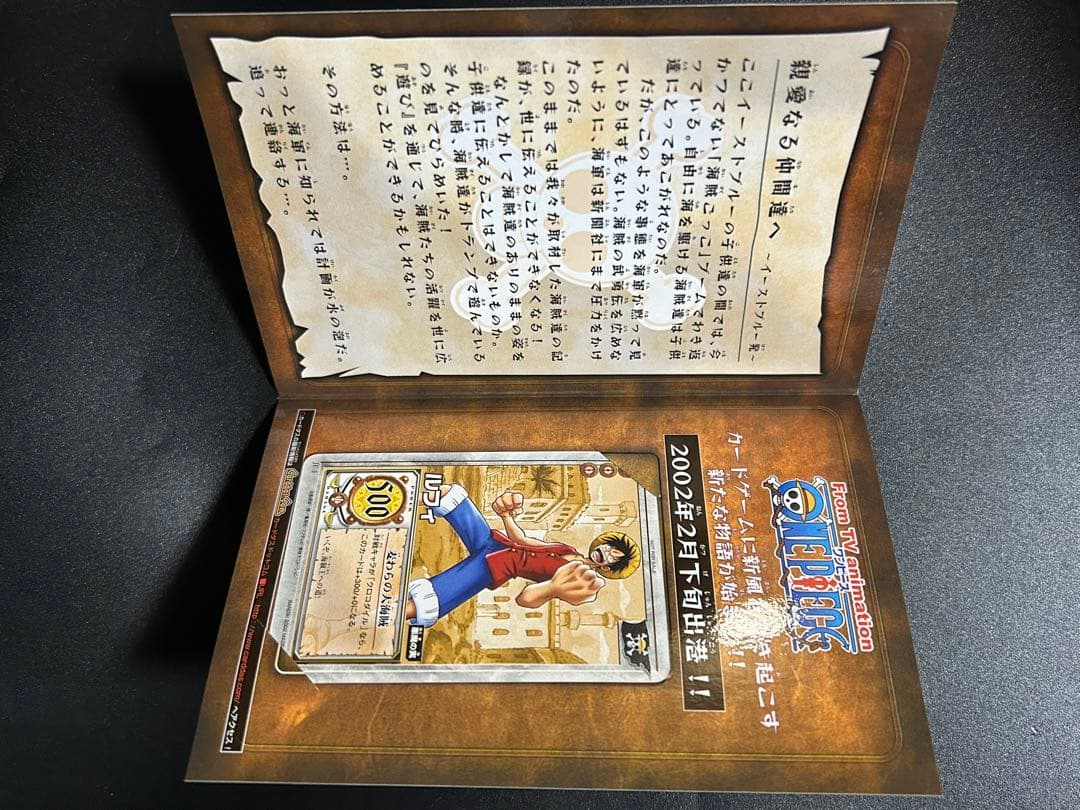 親愛なる仲間達へ
～イーストブルー発～
ここイーストブルーの子供達の間では、今
かつてない「海賊ごっこ」ブームでわき返
っている。自由に海を駆ける海賊達は子供
達にとってあこがれなのだ。
だが、このような事態を海軍が黙って見
ているはずもない。海賊の武勇伝を広めな
いように、海軍は新聞社にまで圧力をかけ
たのだ。
このままでは我々が取材した海賊達の記
録が、世に伝えることができなくなる！
なんとかして海賊達のありのままの姿を
子供達に伝えることはできないものか。
そんな時、海賊達がトランプで遊んでいる
のを見てひらめいた！
『遊び』を通じて、海賊たちの活躍を世に広
めることができるかもしれない。
その方法は…。
おっと海軍に知られては計画が水の泡だ。
追って連絡する…。
From TV animation
ONE PIECE
ワンピース
カードゲームに新風
き起こす
新たな物語が始
!!
2002年2月下旬出港!!
ルフィ
500
麦わらの大海賊
対戦キャラが「クロコダイル」なら、
このカードは+300/+0になる
いくぞ、海賊王への道!
カードダスの最新情報は
カードダスドットコム
http://www.carddas.com/へアクセス!